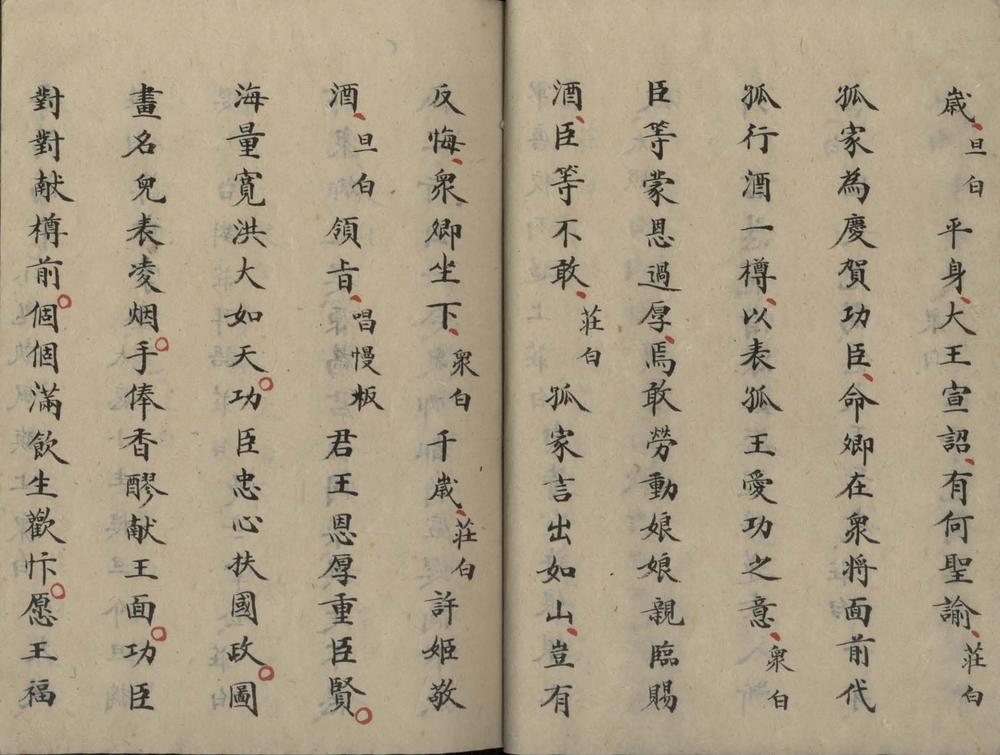 歳、旦白平身、大王宣詔、有何聖諭、莊白
孤家為慶賀功臣、命卿在衆将面前代
孤行酒一樽、以表孤王愛功之意、衆白
臣等蒙恩過厚、焉敢勞動娘娘親臨賜
酒、臣等不敢、莊白孤家言出如山、豈有
反悔、衆卿坐下、衆白千歳、莊白許姬敬
酒、旦白領旨、唱慢板君王恩厚重臣賢。
海量寛洪大如天。功臣忠心扶國政。圖
畫名皃表凌烟。手俸香醪献王面。功臣
對對献樽前。個個滿飲生歡忭。愿王福